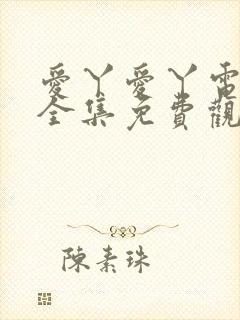 愛丫愛丫電
全集免費觀
陳素珠